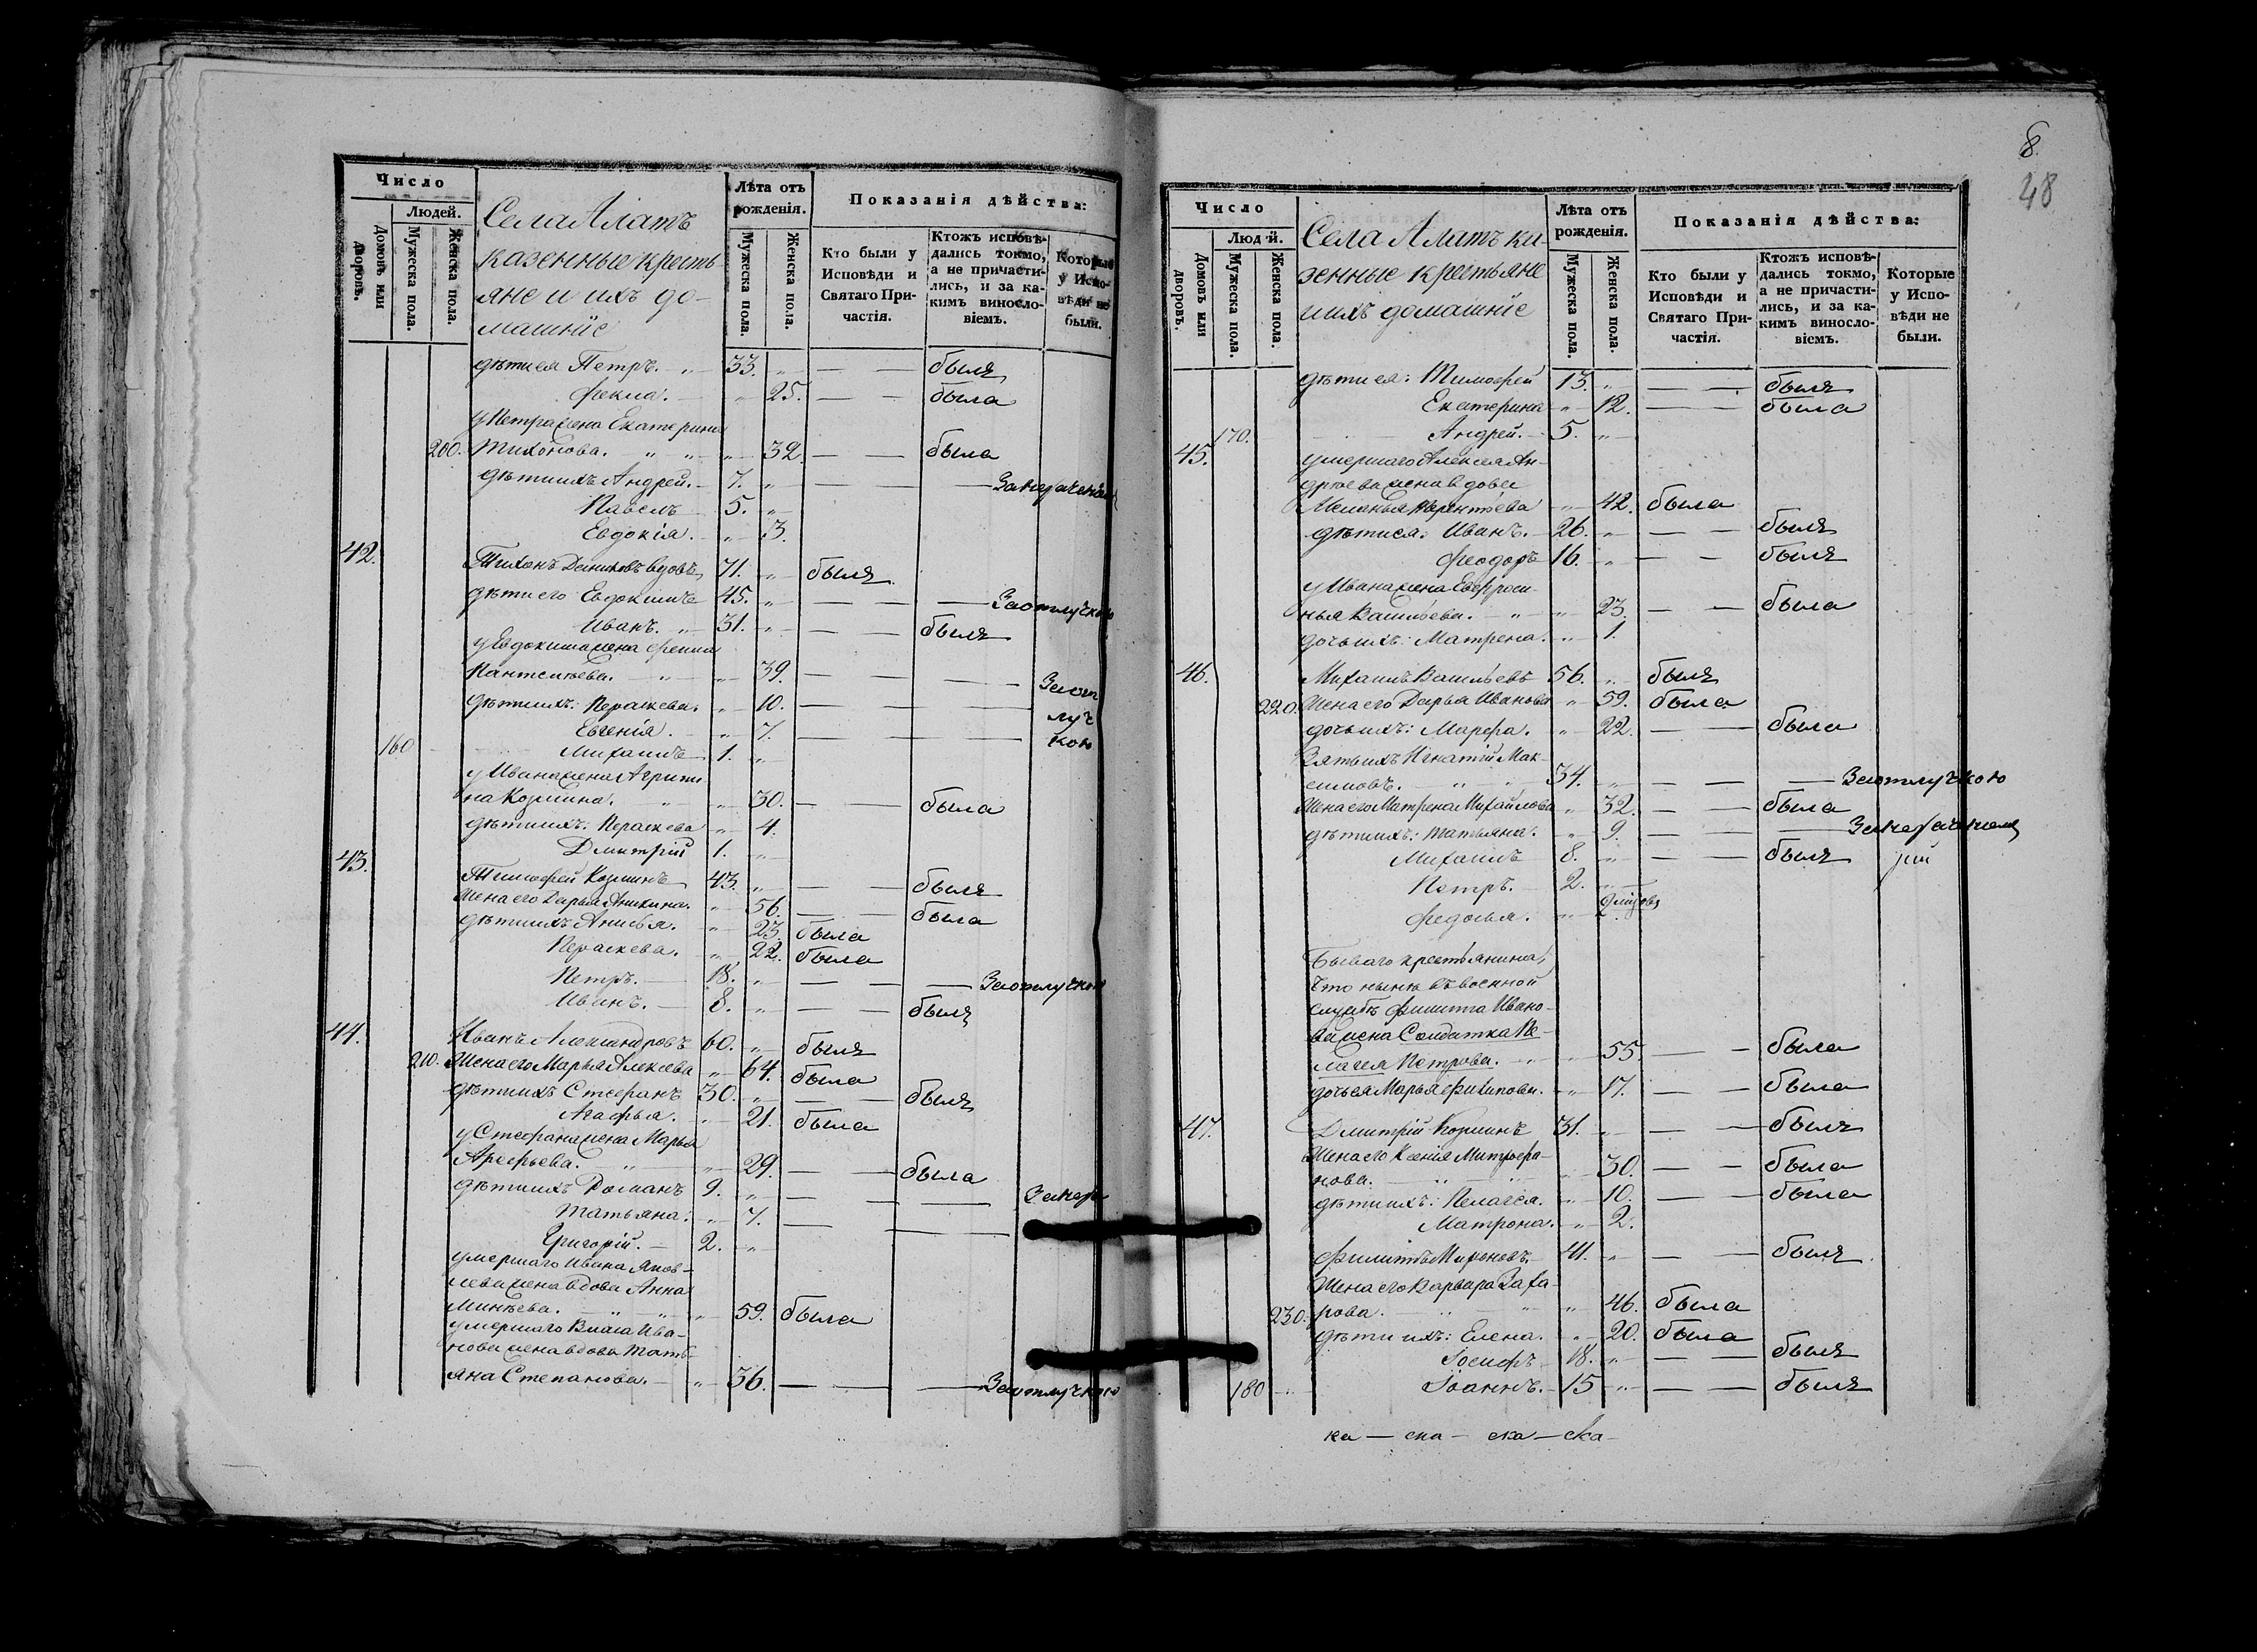 Число
Людей.
Домовъ или дворовъ.
Мужеска пола.
Женска пола.
Села Алатъ
казенные кресть-
яне и ихъ до-
машніе
Лѣта отъ рожденія.
Мужеска пола.
Женска пола.
Показанія дѣйства:
Кто были у Исповѣди и Святаго При-частія.
Ктожъ исповѣ-дались токмо, а не причасти-лись, и за ка-кимъ виносло-віемъ.
Которые у Испо-вѣди не были.
дѣти ея Петръ. 33. былъ
Фекла. 25. была
у Петра жена Екатерина
200. Тихонова. 32. была
дѣти ихъ Андрей. 7.
Павелъ 5.
Евдокія. 3.
42. Тихонъ вдовъ 71. былъ
дѣти его Евдокимъ 45. За отлучкою
Иванъ. 31. былъ
у Евдокима жена
Пантелѣева. 39. За от
дѣти ихъ: Параскева. 10. луч
Евгенія. 7. кою
160 Михаилъ 1.
у Ивана жена Агрипи
на Козмина. 30. была
дѣти ихъ: Параскева 4.
Дмитрій 1.
43. Тимофей Козминъ 43. былъ
Жена его Дарья Аникина. 56. была
дѣти ихъ Анисья. 23. была
Параскева. 22. была
Петръ. 18. За отлучкою
Иванъ. 8. былъ
44. Иванъ Александровъ 60. былъ
210. Жена его Марья Алексѣева 64. была
дѣти ихъ Стефанъ 30. былъ
Агафья. 21. была
у Стефана жена Марья
Арефьева. 29. была
дѣти ихъ Романъ 9.
Татьяна. 7.
Григорій. 2.
умершаго Ивана Яков-
лева жена вдова Анна
Минѣева. 59. была
умершаго Власа Ива-
нова жена вдова Тать-
яна Степанова. 36. За отлучкою
8.
48
Число
Людей.
Домовъ или дворовъ.
Мужеска пола.
Женска пола.
Села Алатъ ка-
зенные крестьяне
и ихъ домашніе
Лѣта отъ рожденія.
Мужеска пола.
Женска пола.
Показанія дѣйства:
Кто были у Исповѣди и Святаго При-частія.
Ктожъ исповѣ-дались токмо, а не причасти-лись, и за ка-кимъ виносло-віемъ.
Которые у Испо-вѣди не были.
дѣти ея: Тимофей 13. былъ
Екатерина 12. была
170. Андрей. 5.
45. умершаго Алексея Ан-
дреева жена вдова
42. была
дѣти ея: Иванъ. 26. былъ
Феодоръ 16. былъ
у Ивана жена Евфроси-
нья Васильева. 23. была
дочь ихъ: Матрена. 1.
46. Михаилъ Васильевъ 56. былъ
220. Жена его Дарья Иванова 59. была
дочь ихъ: Марфа. 22. была
Зять ихъ Игнатій Мак-
симовъ. 34. За отлучкою
Жена его Матрена Михайлова 32. была
дѣти ихъ: Татьяна. 9.
Михаилъ 8. былъ
Петръ. 2.
Федосья.
Бываго крестьянина,
что нынѣ въ военной
службѣ Филиппа Ивано-
ва жена Солдатка Пе-
лагея Петрова. 55. была
дочь ея Марья Филипова. 17. была
47. Дмитрій Козминъ 31. былъ
Жена его Ксенія Митрофа-
нова. 30. была
дѣти ихъ: Пелагея. 10. была
Матрона. 2.
Филиппъ Мироновъ. 41. былъ
Жена его Варвара Заха-
230. рова. 46. была
дѣти ихъ: Елена. 20. была
Іосифъ 18. былъ
180 Іоаннъ. 15 былъ
ка — ска — ска — ска